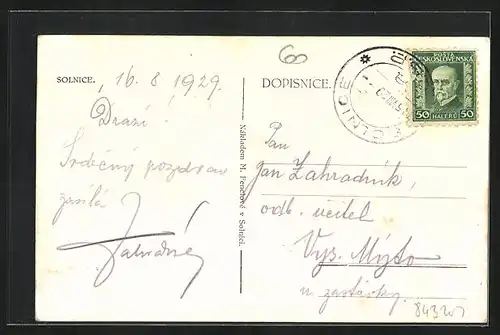 SOLNICE, 16. 8 1929.
Drazí!
Srdečný pozdrav
zasílá
Zahradník
Nákladem M. Peuchtové v Solnici.
6
DOPISNICE.
SOLNICE
POŠTA
ČESKOSLOVENSKÁ
50 HALÉŘŮ 50
Pan
Jan Zahradník,
odb. učitel
Vys. Mýto
u zastávky.
843207